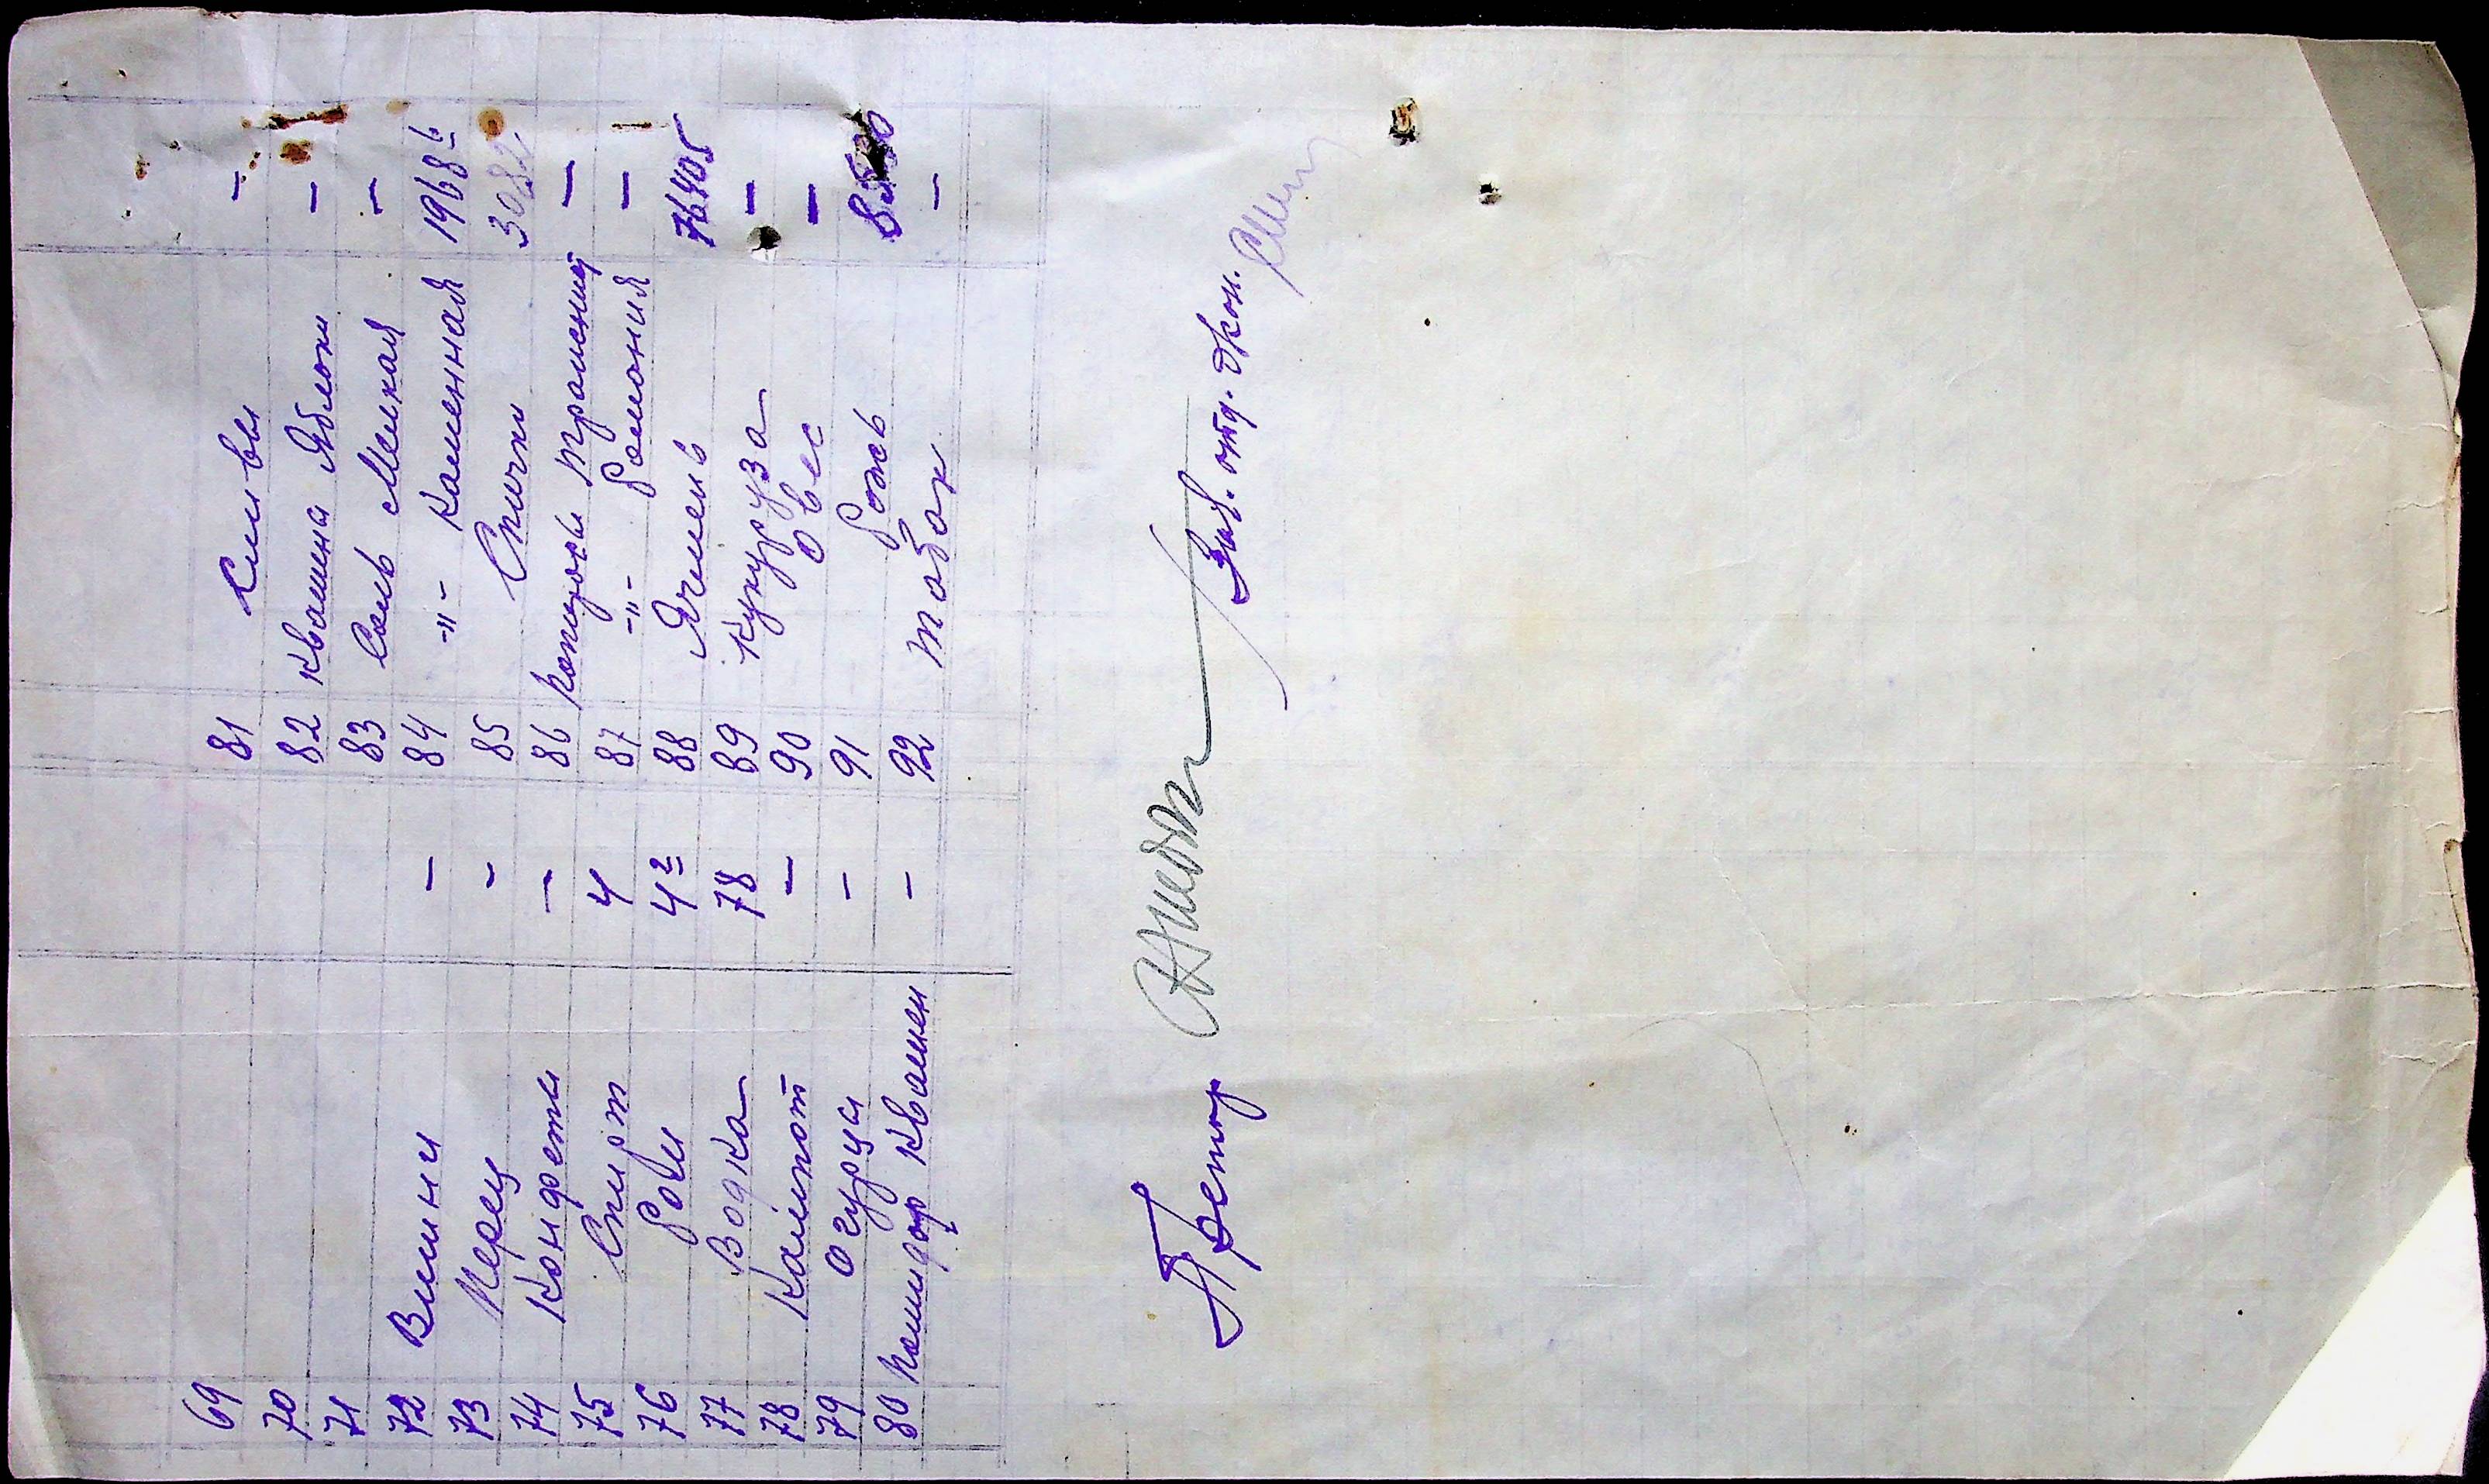 69 81 Сливы –
70 82 Квашена Яблоки –
71 83 Соль Мелкая –
72 Вишни – 84 -"- Каменная 1968 6
73 Перец – 85 Спички 3082
74 Конфеты – 86 –
75 Спирт 4 87 -"- –
76 4 2 88 Ячмень 76405
77 Водка 78 89 Кукуруза –
78 Компот – 90 Овес –
79 Огурцы – 91 Рожь
80 Помидор Квашен – 92 Табак –
Зав. отд. Экон.